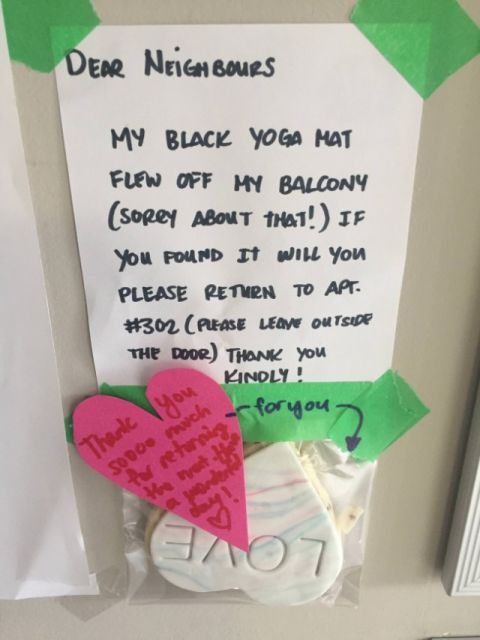 DEAR NEIGHBOURS
MY BLACK YOGA MAT
FLEW OFF MY BALCONY
(SORRY ABOUT THAT!) IF
YOU FOUND IT WILL YOU
PLEASE RETURN TO APT.
#302 (PLEASE LEAVE OUTSIDE
THE DOOR) THANK YOU
KINDLY!
for you
Thank you
sooo much
for returning
the mat. Have
a wonderful
day!
LOVE